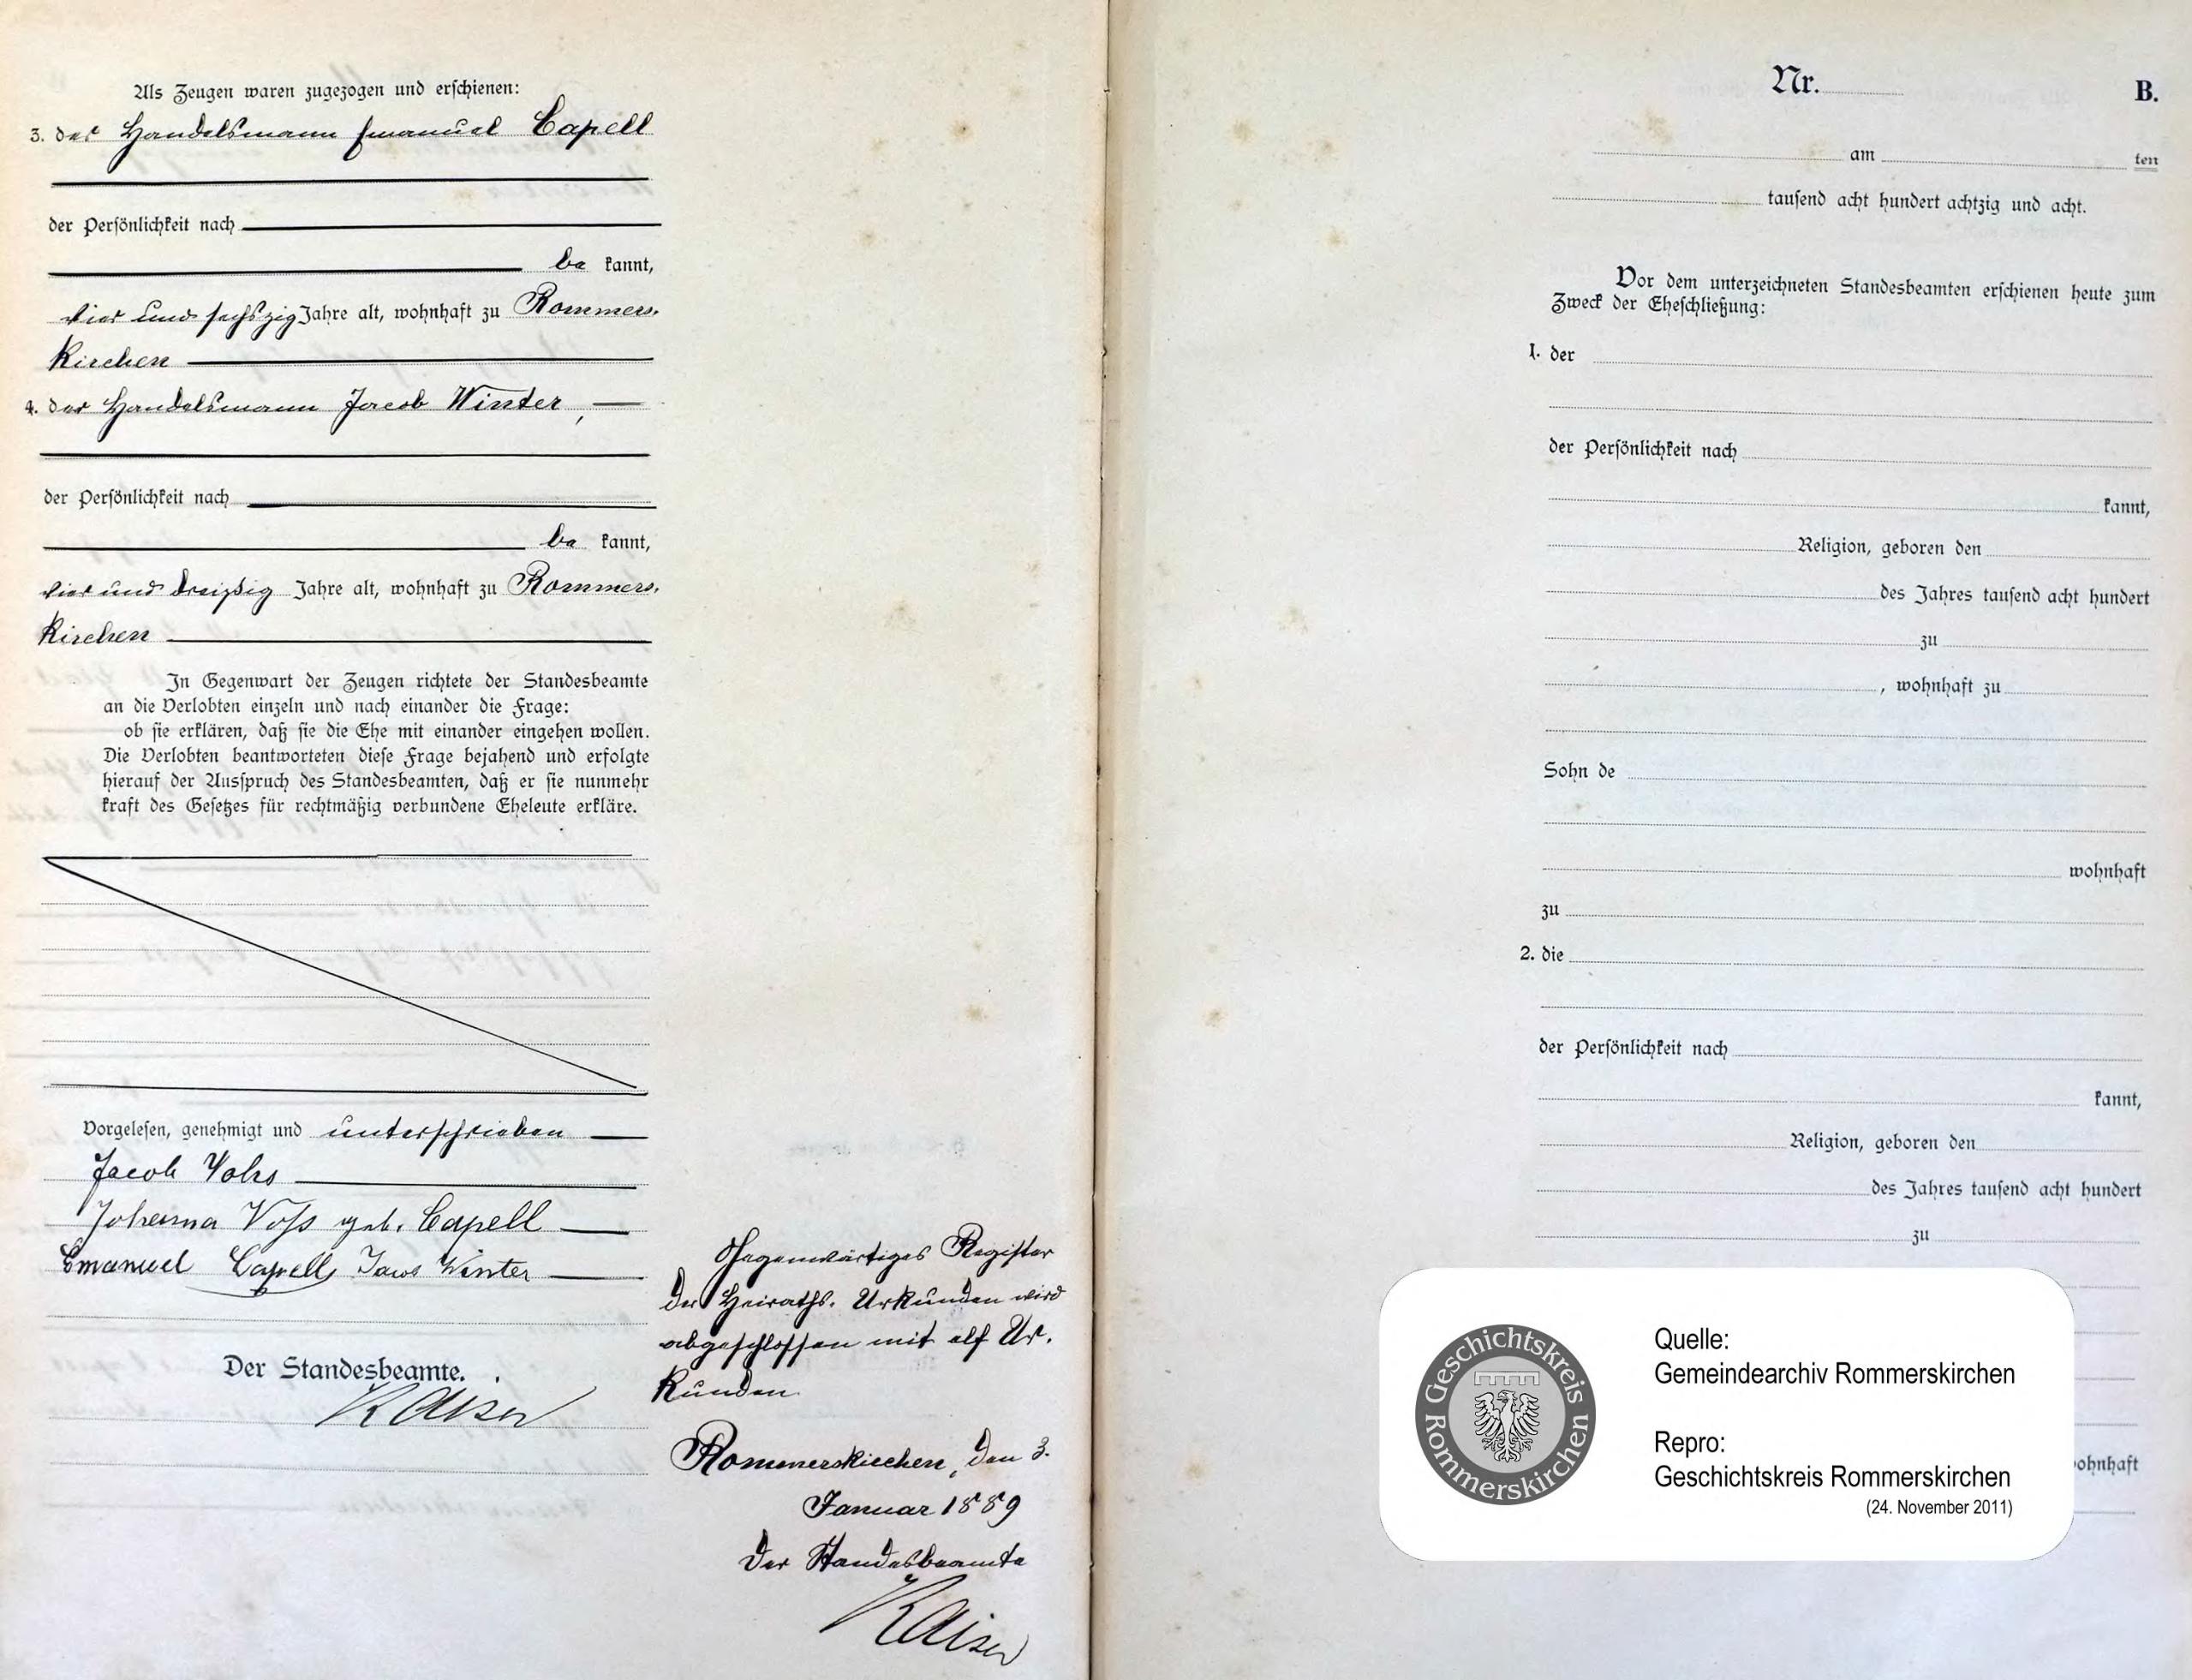 Als Zeugen waren zugezogen und erschienen:
3. der Handelsmann Emanuel Capell
der Persönlichkeit nach
be kannt,
vier und sechszig Jahre alt, wohnhaft zu Rommers-
kirchen
4. der Handelsmann Jacob Winter,
der Persönlichkeit nach
be kannt,
vier und dreißig Jahre alt, wohnhaft zu Rommers-
kirchen
In Gegenwart der Zeugen richtete der Standesbeamte
an die Verlobten einzeln und nach einander die Frage:
ob sie erklären, daß sie die Ehe mit einander eingehen wollen.
Die Verlobten beantworteten diese Frage bejahend und erfolgte
hierauf der Ausspruch des Standesbeamten, daß er sie nunmehr
kraft des Gesetzes für rechtmäßig verbundene Eheleute erkläre.
Vorgelesen, genehmigt und unterschrieben
Jacob
Johanna Voss geb. Capell
Emanuel Capell Winter
Der Standesbeamte.
Kaiser
Gegenwärtiges Register
der Heiraths-Urkunden wird
abgeschlossen mit elf Ur-
kunden.
Rommerskirchen, den 3.
Januar 1889
Der Standesbeamte
Kaiser
Nr. B.
am ten
tausend acht hundert achtzig und acht.
Vor dem unterzeichneten Standesbeamten erschienen heute zum
Zweck der Eheschließung:
1. der
der Persönlichkeit nach
kannt,
Religion, geboren den
des Jahres tausend acht hundert
zu
, wohnhaft zu
Sohn de
wohnhaft
zu
2. die
der Persönlichkeit nach
kannt,
Religion, geboren den
des Jahres tausend acht hundert
zu
ohnhaft
Geschichtskreis Rommerskirchen
Quelle:
Gemeindearchiv Rommerskirchen
Repro:
Geschichtskreis Rommerskirchen
(24. November 2011)